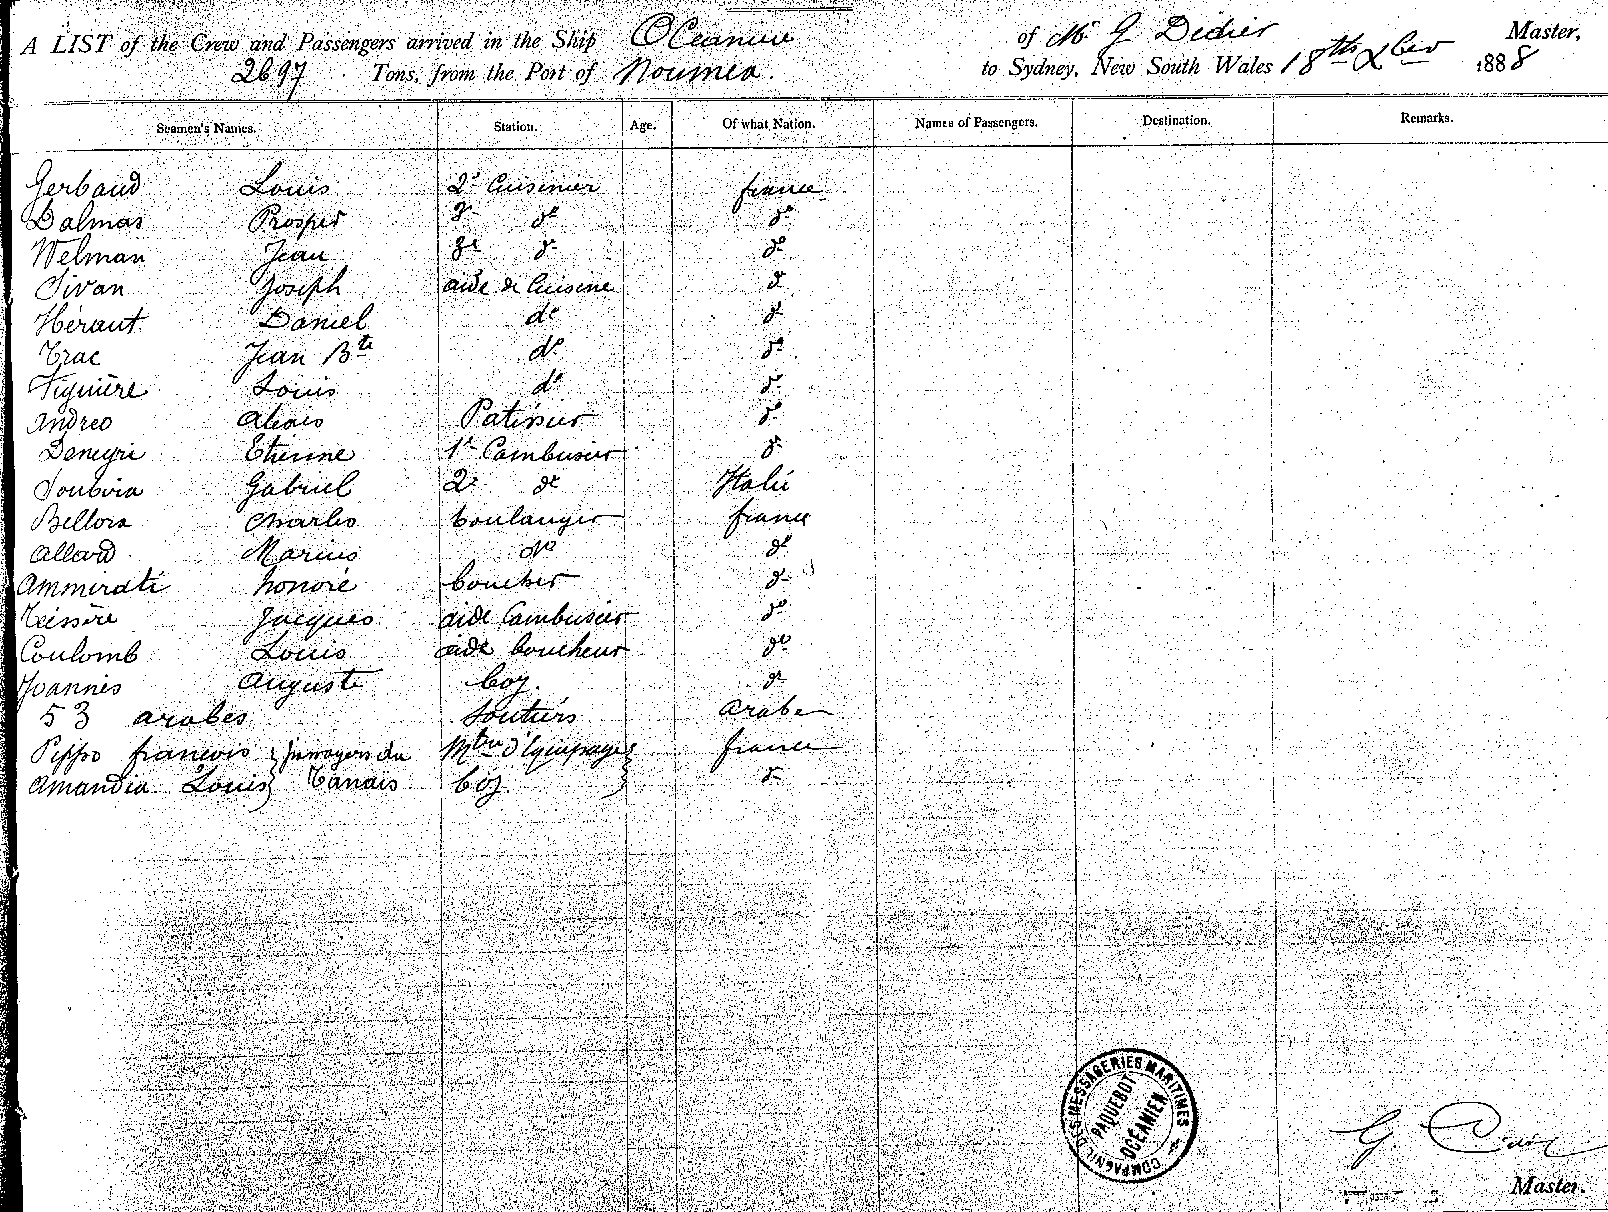 A LIST of the Crew and Passengers arrived in the Ship Oceanien of Mr G Didier Master,
2697 Tons, from the Port of Noumea. to Sydney, New South Wales 18th Xber 1888
Seamen's Names. Station. Age. Of what Nation. Names of Passengers. Destination. Remarks.
Gerbaud Louis 2e Cuisinier france
Dalmas Prosper 3e do do
Welman Jean 3e do do
Sivan Joseph aide de Cuisine do
Héraut Daniel do do
Trac Jean Bte do do
Figuière Louis do do
Andreo Patissier do
Daneyri Etienne 1er Cambusier do
Gabriel 2e do Italie
Bellora Charles boulanger france
Allard Marius do do
Ammirati honoré boucher do
Teissère Jacques aide Cambusier do
Coulomb Louis aide boucheur do
Joannès Auguste boy. do
53 arabes Soutiers arabe
Peppo francois } du Mtre d'Equipage } france
Amandia Louis } Tanais boy } do
COMPAGNIE DES MESSAGERIES MARITIMES
PAQUEBOT
OCÉANIEN
G Didier
Master.